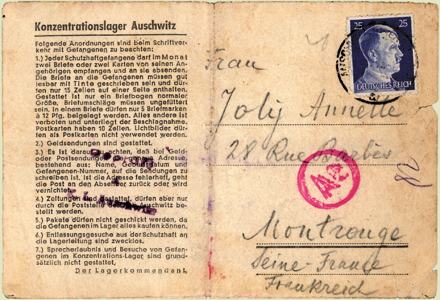 Konzentrationslager Auschwitz
Folgende Anordnungen sind beim Schriftver-
kehr mit Gefangenen zu beachten:
1.) Jeder Schutzhaftgefangene darf im Monat
zwei Briefe oder zwei Karten von seinen An-
gehörigen empfangen und an sie absenden.
Die Briefe an die Gefangenen müssen gut
lesbar mit Tinte geschrieben sein und dür-
fen nur 15 Zeilen auf einer Seite enthalten.
Gestattet ist nur ein Briefbogen normaler
Größe. Briefumschläge müssen ungefüttert
sein. In einem Briefe dürfen nur 5 Briefmarken
à 12 Pfg. beigelegt werden. Alles andere ist
verboten und unterliegt der Beschlagnahme.
Postkarten haben 10 Zeilen. Lichtbilder dür-
fen als Postkarten nicht verwendet werden.
2.) Geldsendungen sind gestattet.
3.) Es ist darauf zu achten, daß bei Geld-
oder Postsendungen die genaue Adresse,
bestehend aus: Name, Geburtsdatum und
Gefangenen-Nummer, auf die Sendungen zu
schreiben ist. Ist die Adresse fehlerhaft, geht
die Post an den Absender zurück oder wird
vernichtet.
4.) Zeitungen sind gestattet, dürfen aber nur
durch die Poststelle des K. L. Auschwitz be-
stellt werden.
5.) Pakete dürfen nicht geschickt werden, da
die Gefangenen im Lager alles kaufen können.
6.) Entlassungsgesuche aus der Schutzhaft an
die Lagerleitung sind zwecklos.
7.) Sprecherlaubnis und Besuche von Gefan-
genen im Konzentrations-Lager sind grund-
sätzlich nicht gestattet.
Der Lagerkommandant.
25 25
DEUTSCHES REICH
Frau
Joly Annette
28 Rue Barbès
Ae
Montrouge
Seine-France
Frankreich